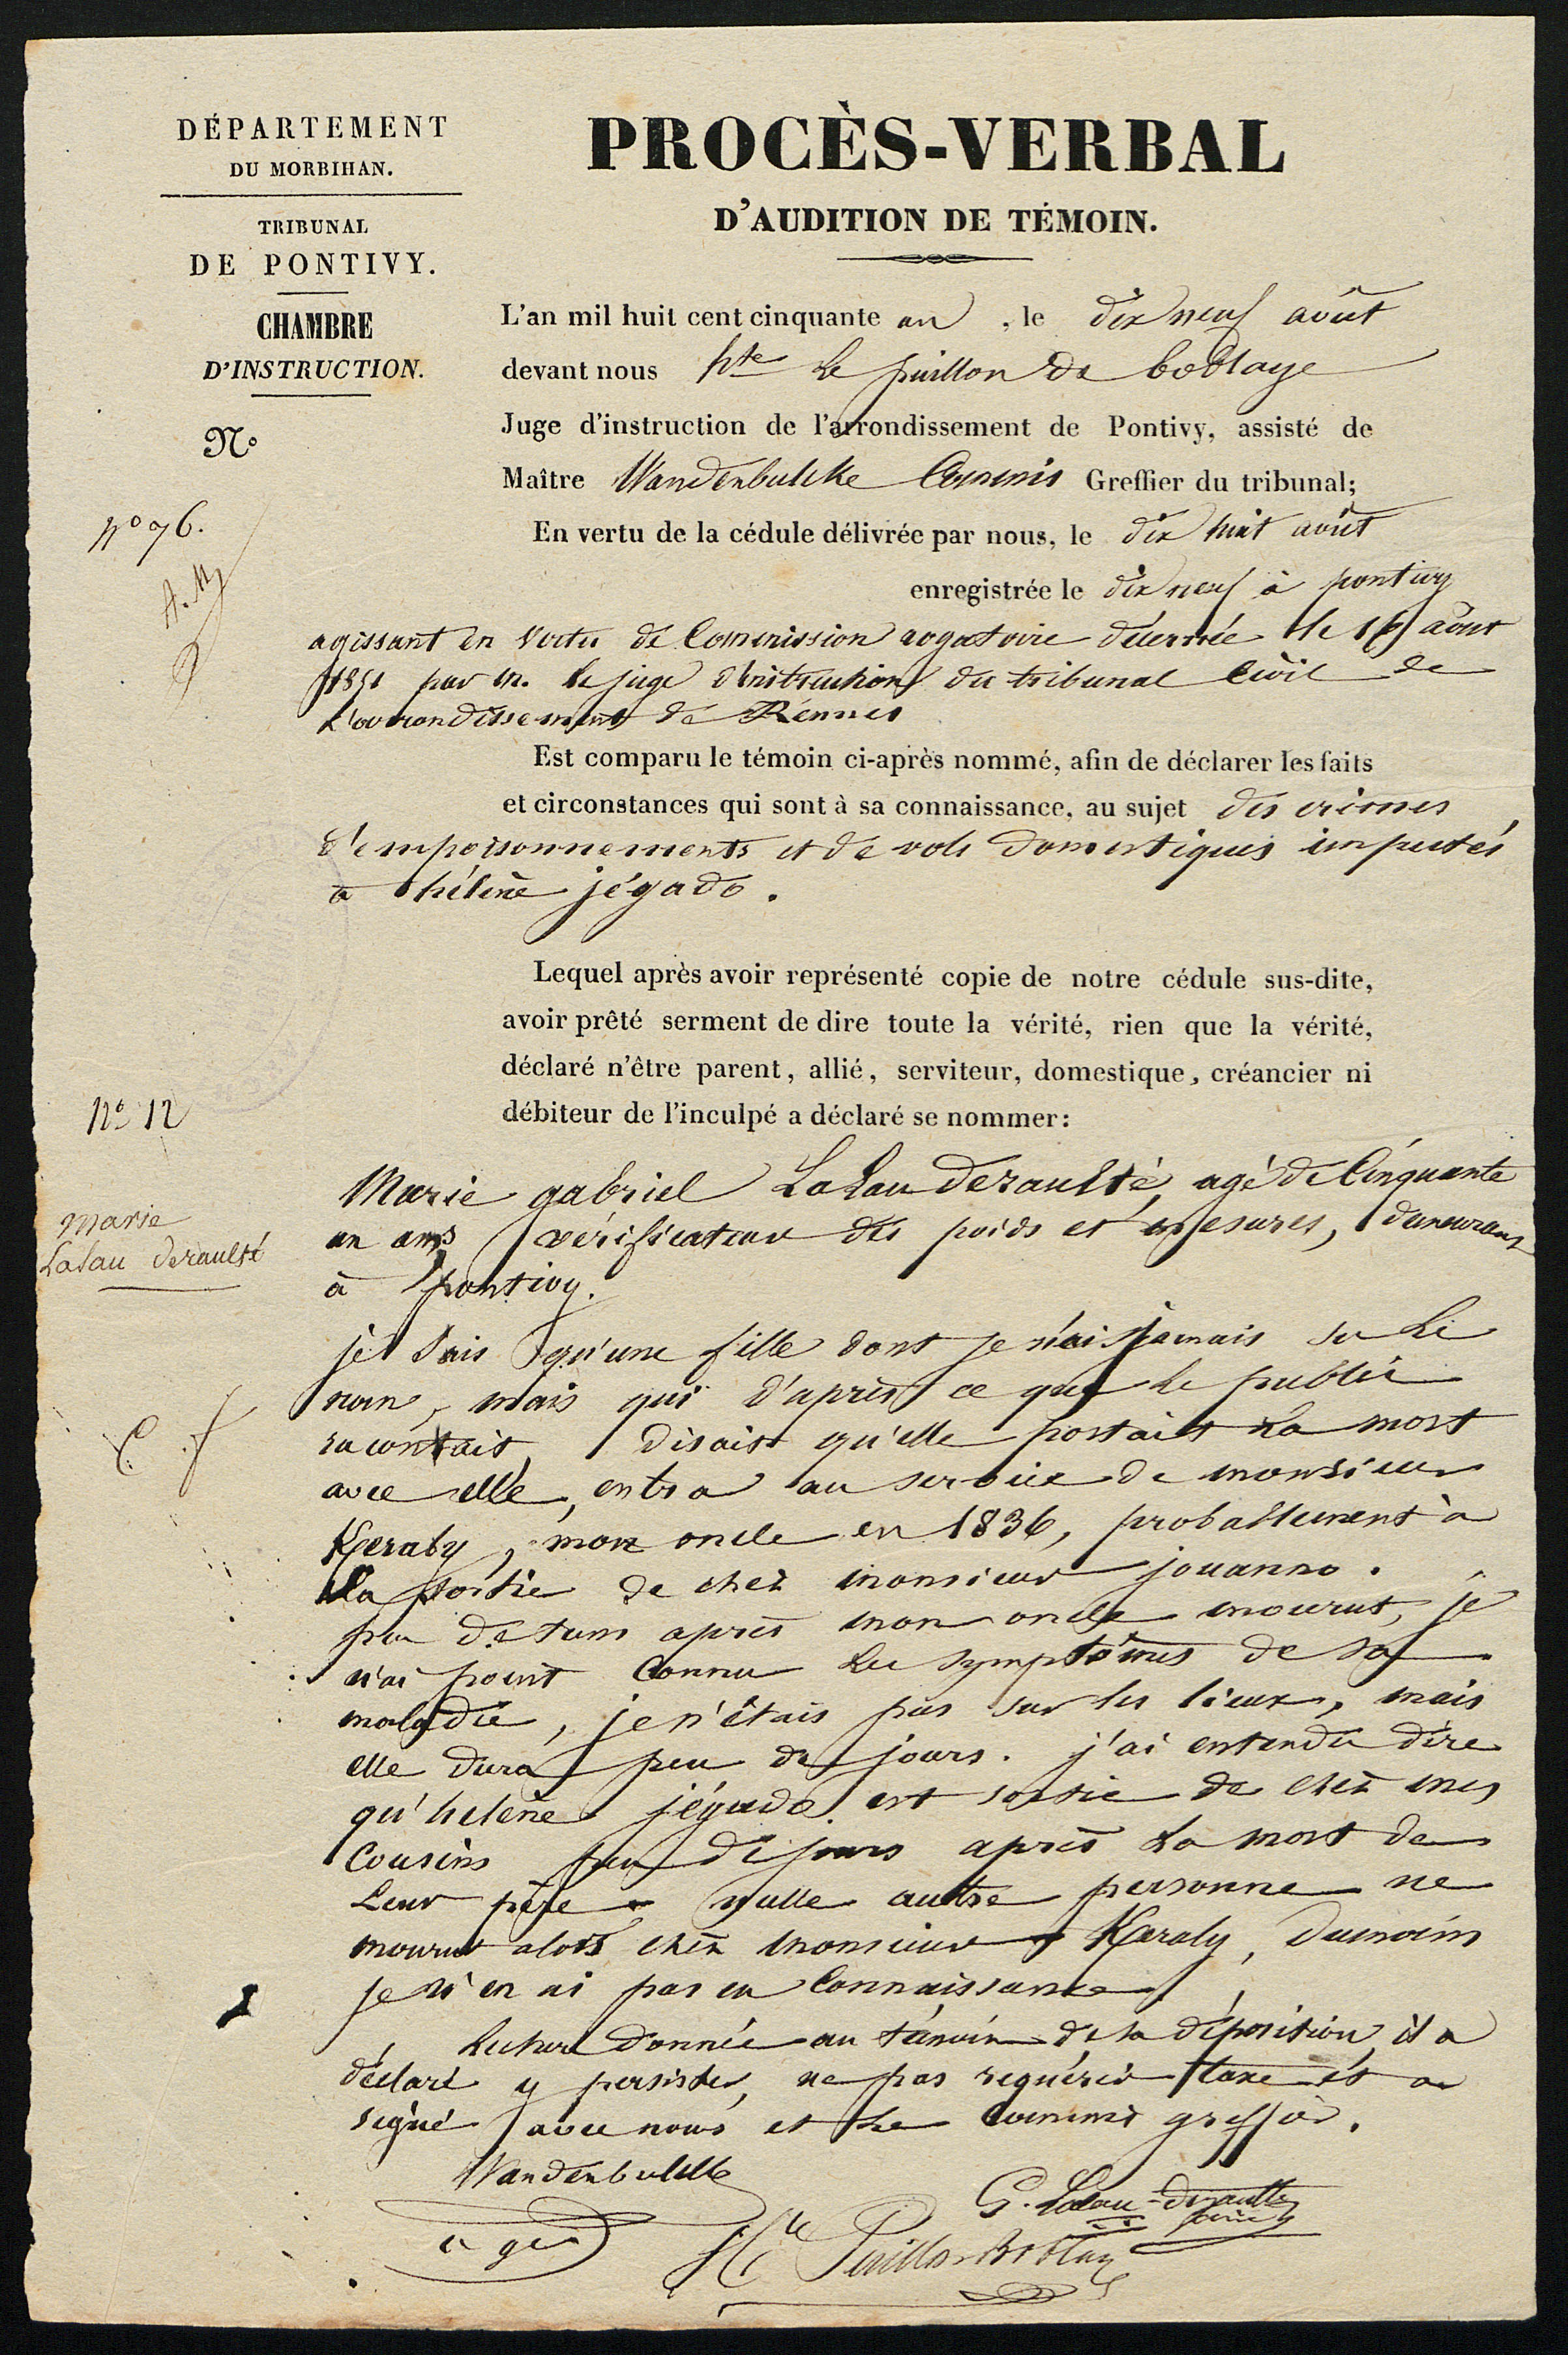 DÉPARTEMENT
DU MORBIHAN.
TRIBUNAL
DE PONTIVY.
CHAMBRE
D'INSTRUCTION.
N°
n° 76.
A. M
PROCÈS-VERBAL
D'AUDITION DE TÉMOIN.
L'an mil huit cent cinquante un, le dix neuf août
devant nous hte Le puillon de boblaye
Juge d'instruction de l'arrondissement de Pontivy, assisté de
Maître Wandenbulcke Commis Greffier du tribunal;
En vertu de la cédule délivrée par nous, le dix huit août
enregistrée le dix neuf à pontivy
agissant en vertu de Commission rogatoire décernée le août
1851 par m. le juge d'instruction du tribunal Civil de
L'arrondissement de Rennes
Est comparu le témoin ci-après nommé, afin de déclarer les faits
et circonstances qui sont à sa connaissance, au sujet des crimes
d'empoisonnements et de vols domestiques imputés
a hélène jégado.
Lequel après avoir représenté copie de notre cédule sus-dite,
avoir prêté serment de dire toute la vérité, rien que la vérité,
déclaré n'être parent, allié, serviteur, domestique, créancier ni
débiteur de l'inculpé a déclaré se nommer:
n° 12
marie
Lalau deraulté
Marie gabriel LaLau deraulté, agé de Cinquante
un ans vérificateur des poids et mesures, demeurant
à pontivy.
je sais qu'une fille dont je n'ai jamais su Le
nom, mais qui d'après ce que le public
racontait, disait qu'elle portait La mort
avec elle, entra au service de monsieur
Keraly, mon oncle en 1836, probablement à
La sortie de chez monsieur jouanno.
peu de tems après mon oncle mourut, je
n'ai point Connu Les symptômes de sa
maladie, je n'étais pas sur les lieux, mais
elle dura peu de jours. j'ai entendu dire
qu'helène jégado est sortie de chez mes
Cousins peu de jours après La mort de
Leur père nulle autre personne ne
mourut alors chez monsieur Keraly, dumoins
je n'en ai pas eu Connaissance.
Lecture donnée au témoin de sa déposition il a
déclaré y persister, ne pas requérir taxe et a
signé avec nous et Le Commis greffier.
Wandenbulcke
c ger
G. Lalau-deraulté
Hte Puillon Boblaye